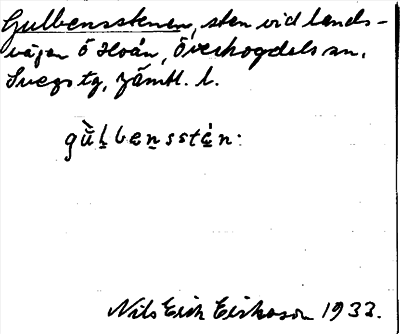 Gulbensstenen, sten vid lands-
vägen Ö Hoån, Överhogdals sn,
Svegs tg, Jämtl. l.
gùḷbeṇsstẹ́n:
Nils Erik Eriksson 1933.